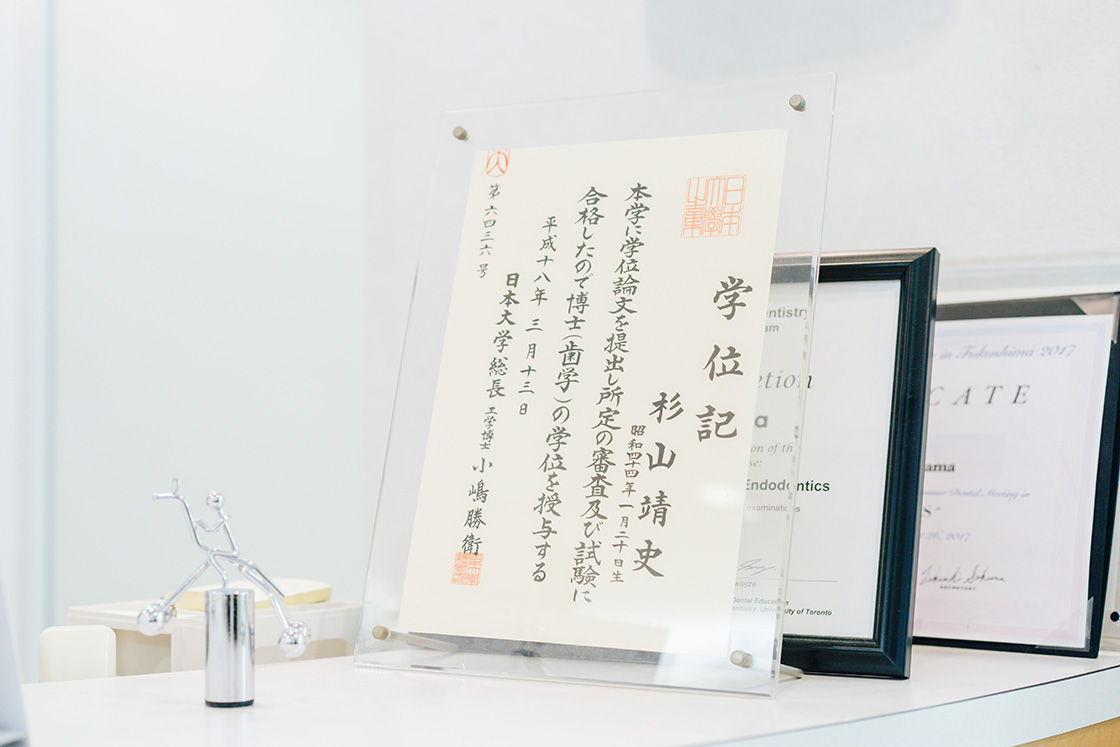 学位記
日本大学之章
杉山靖史
昭和四十四年一月二十日生
本学に学位論文を提出し所定の審査及び試験に
合格したので博士(歯学)の学位を授与する
平成十八年三月十三日
日本大学総長 工学博士 小嶋勝衛
第六四三六号
entistry
am
etion
a
ion of th
se:
Endodontics
examinations
Dental Education
entistry, Univ
sity of Toronto
in Fukushima 2017
CATE
ama
Dental Meeting in
S"
26, 2017